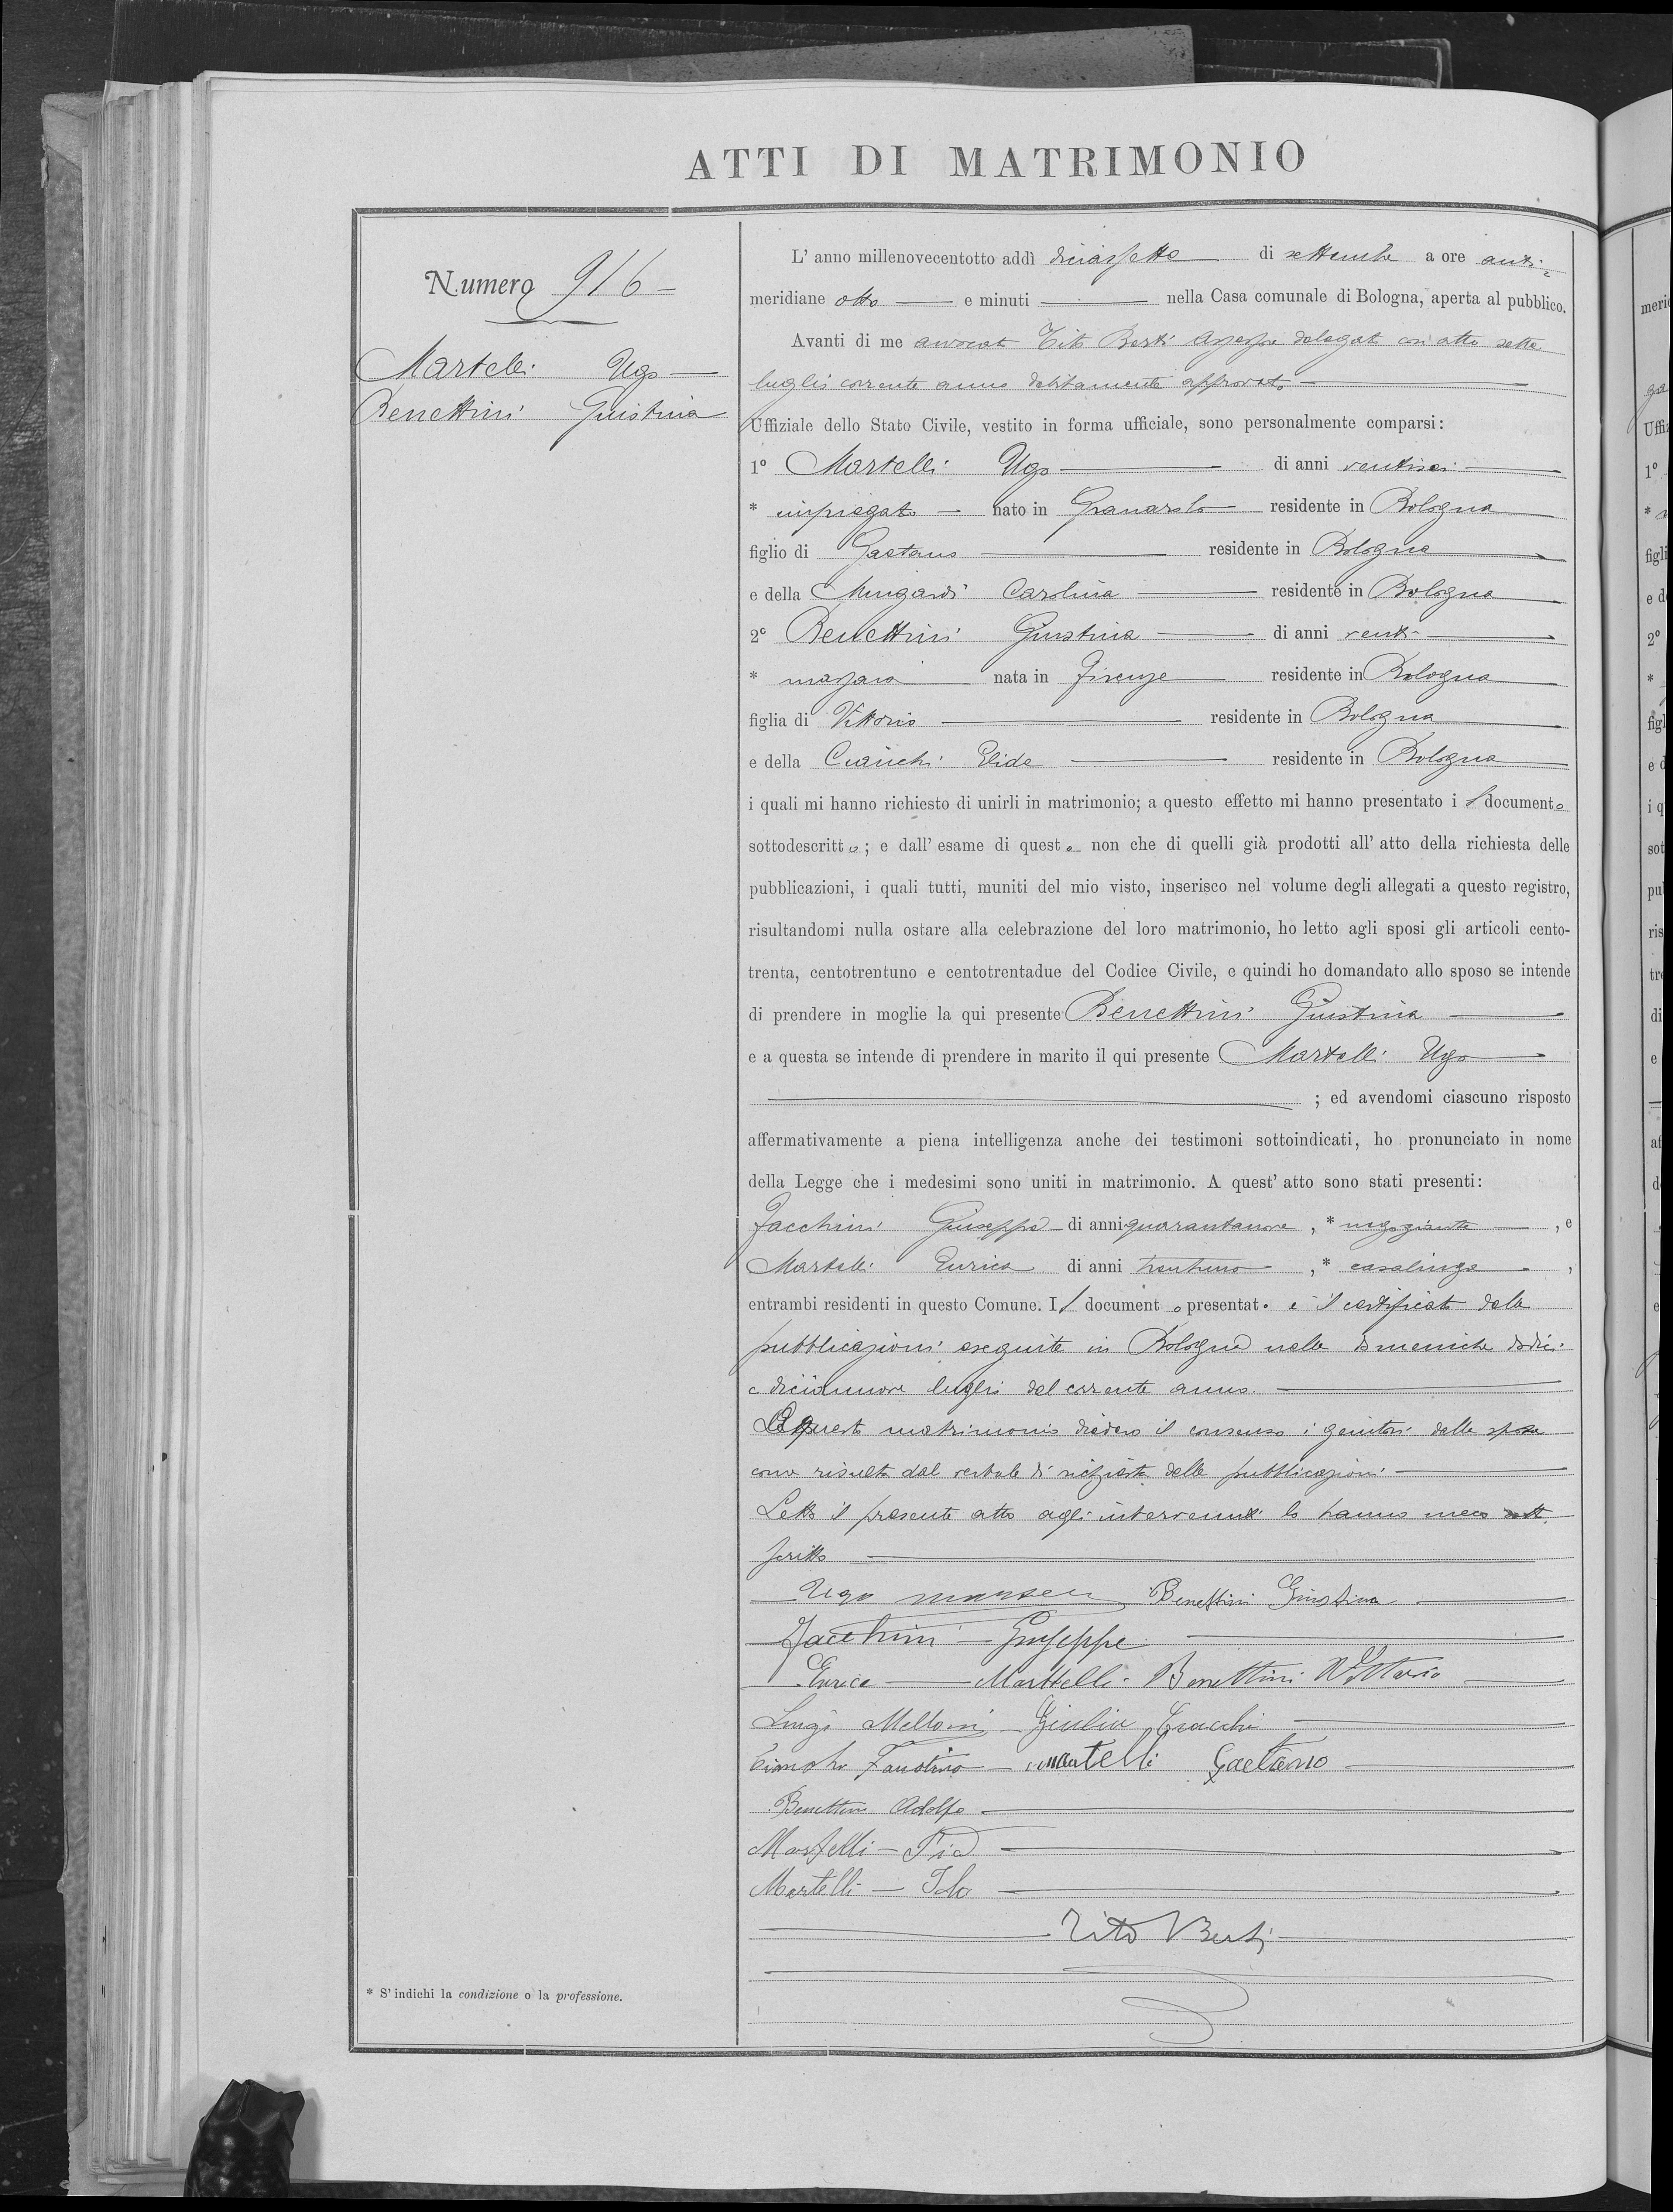 ATTI DI MATRIMONIO
Numero 916
Martelli Ugo
Benettini Giustina
L' anno millenovecentotto addì diciassette di settembre a ore anti-
meridiane otto e minuti nella Casa comunale di Bologna, aperta al pubblico.
Avanti di me avvocato Tito Berti Assessore delegato con atto sette
luglio corrente anno debitamente approvato
Uffiziale dello Stato Civile, vestito in forma ufficiale, sono personalmente comparsi:
1° Martelli Ugo di anni ventisei
* impiegato nato in Granarolo residente in Bologna
figlio di Gaetano residente in Bologna
e della Mingardi Carolina residente in Bologna
2° Benettini Giustina di anni venti
* massaia nata in Firenze residente in Bologna
figlia di Vittorio residente in Bologna
e della Cianchi Elide residente in Bologna
i quali mi hanno richiesto di unirli in matrimonio; a questo effetto mi hanno presentato i l documento
sottodescritto; e dall' esame di questo non che di quelli già prodotti all' atto della richiesta delle
pubblicazioni, i quali tutti, muniti del mio visto, inserisco nel volume degli allegati a questo registro,
risultandomi nulla ostare alla celebrazione del loro matrimonio, ho letto agli sposi gli articoli cento-
trenta, centotrentuno e centotrentadue del Codice Civile, e quindi ho domandato allo sposo se intende
di prendere in moglie la qui presente Benettini Giustina
e a questa se intende di prendere in marito il qui presente Martelli Ugo
; ed avendomi ciascuno risposto
affermativamente a piena intelligenza anche dei testimoni sottoindicati, ho pronunciato in nome
della Legge che i medesimi sono uniti in matrimonio. A quest' atto sono stati presenti:
Jacchini Giuseppe di anni quarantanove, * negoziante, e
Martelli Enrica di anni trentuno, * casalinga,
entrambi residenti in questo Comune. Il documento presentato è il certificato delle
pubblicazioni eseguite in Bologna nelle domeniche dodici
e diciannove luglio del corrente anno.
A questo matrimonio diedero il consenso i genitori della sposa
come risulta dal verbale di richiesta delle pubblicazioni
Letto il presente atto agli intervenuti lo hanno meco sott
scritto
Ugo Martelli Benettini Giustina
Jacchini Giuseppe
Enrica Martelli Benettini Vittorio
Luigi Melloni Giulia
Faustino Martelli Gaetano
Benettini Adolfo
Martelli Pia
Martelli
Tito Berti
* S' indichi la condizione o la professione.